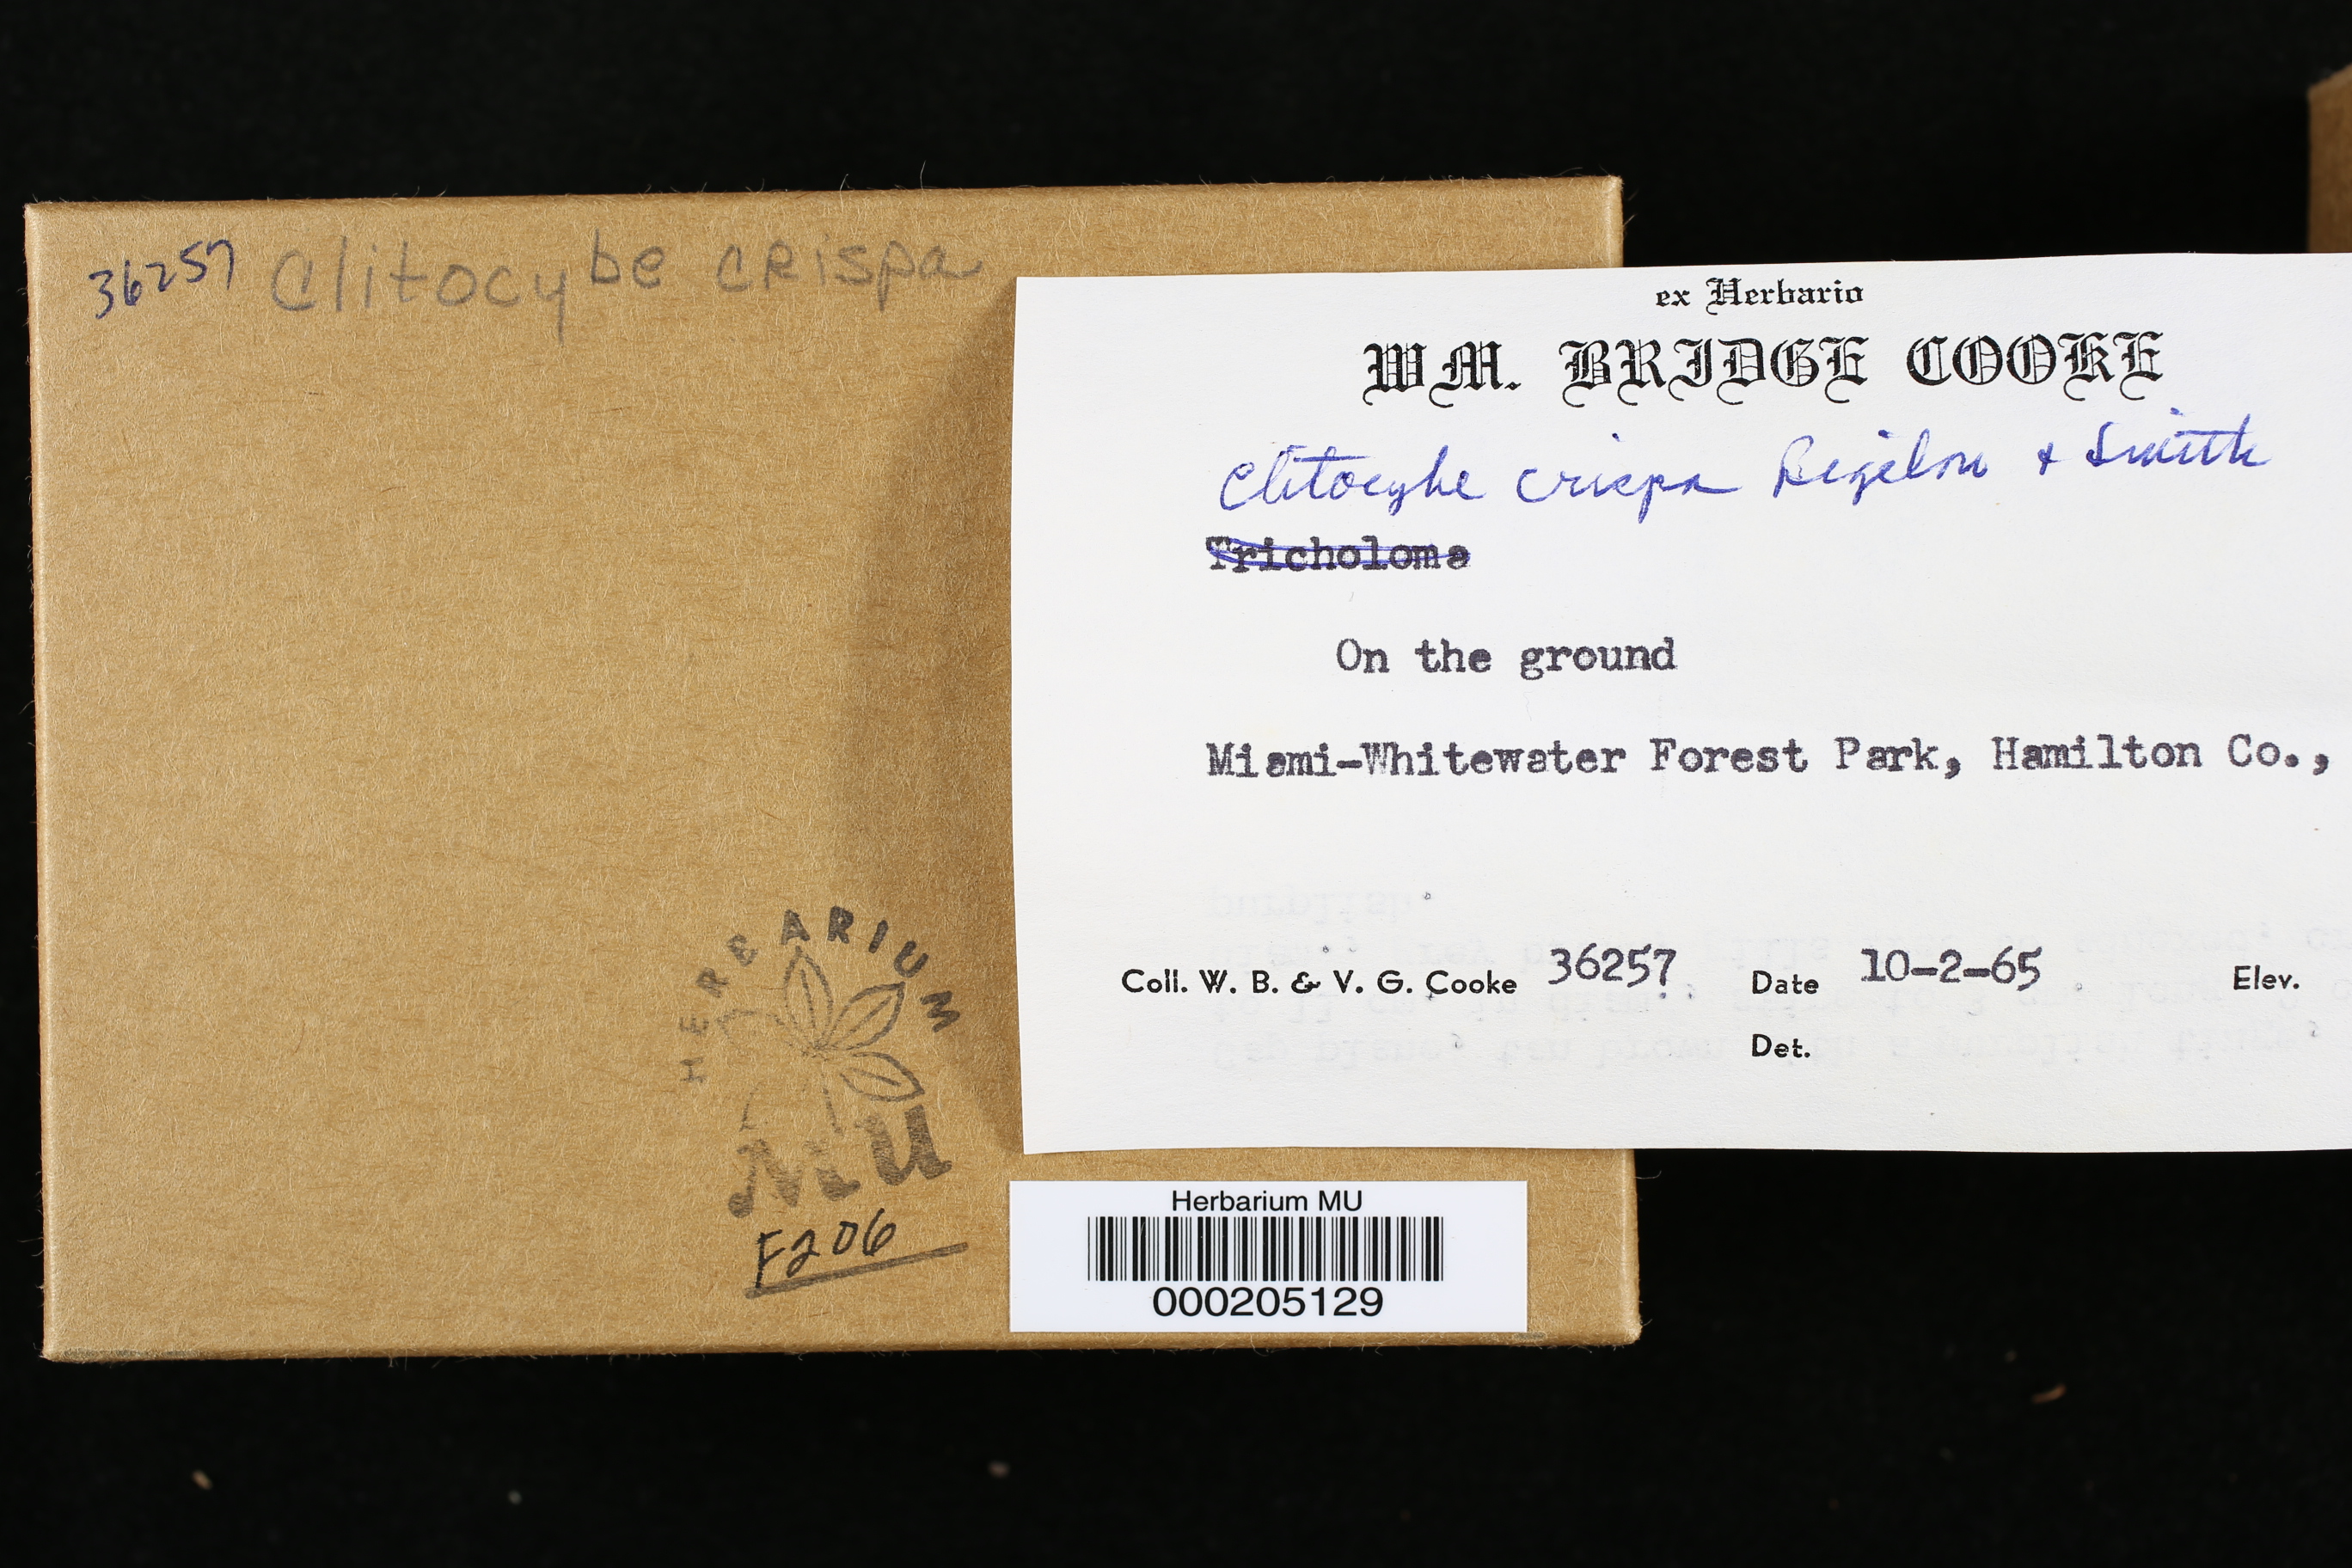 36257 Clitocybe crispa
ex Herbario
WM. BRIDGE COOKE
Clitocybe crispa Bigelow & Smith
Tricholoma
On the ground
Miami-Whitewater Forest Park, Hamilton Co.,
Coll. W. B. & V. G. Cooke 36257 Date 10-2-65 Elev.
Det.
HERBARIUM
MU
F206
Herbarium MU
000205129